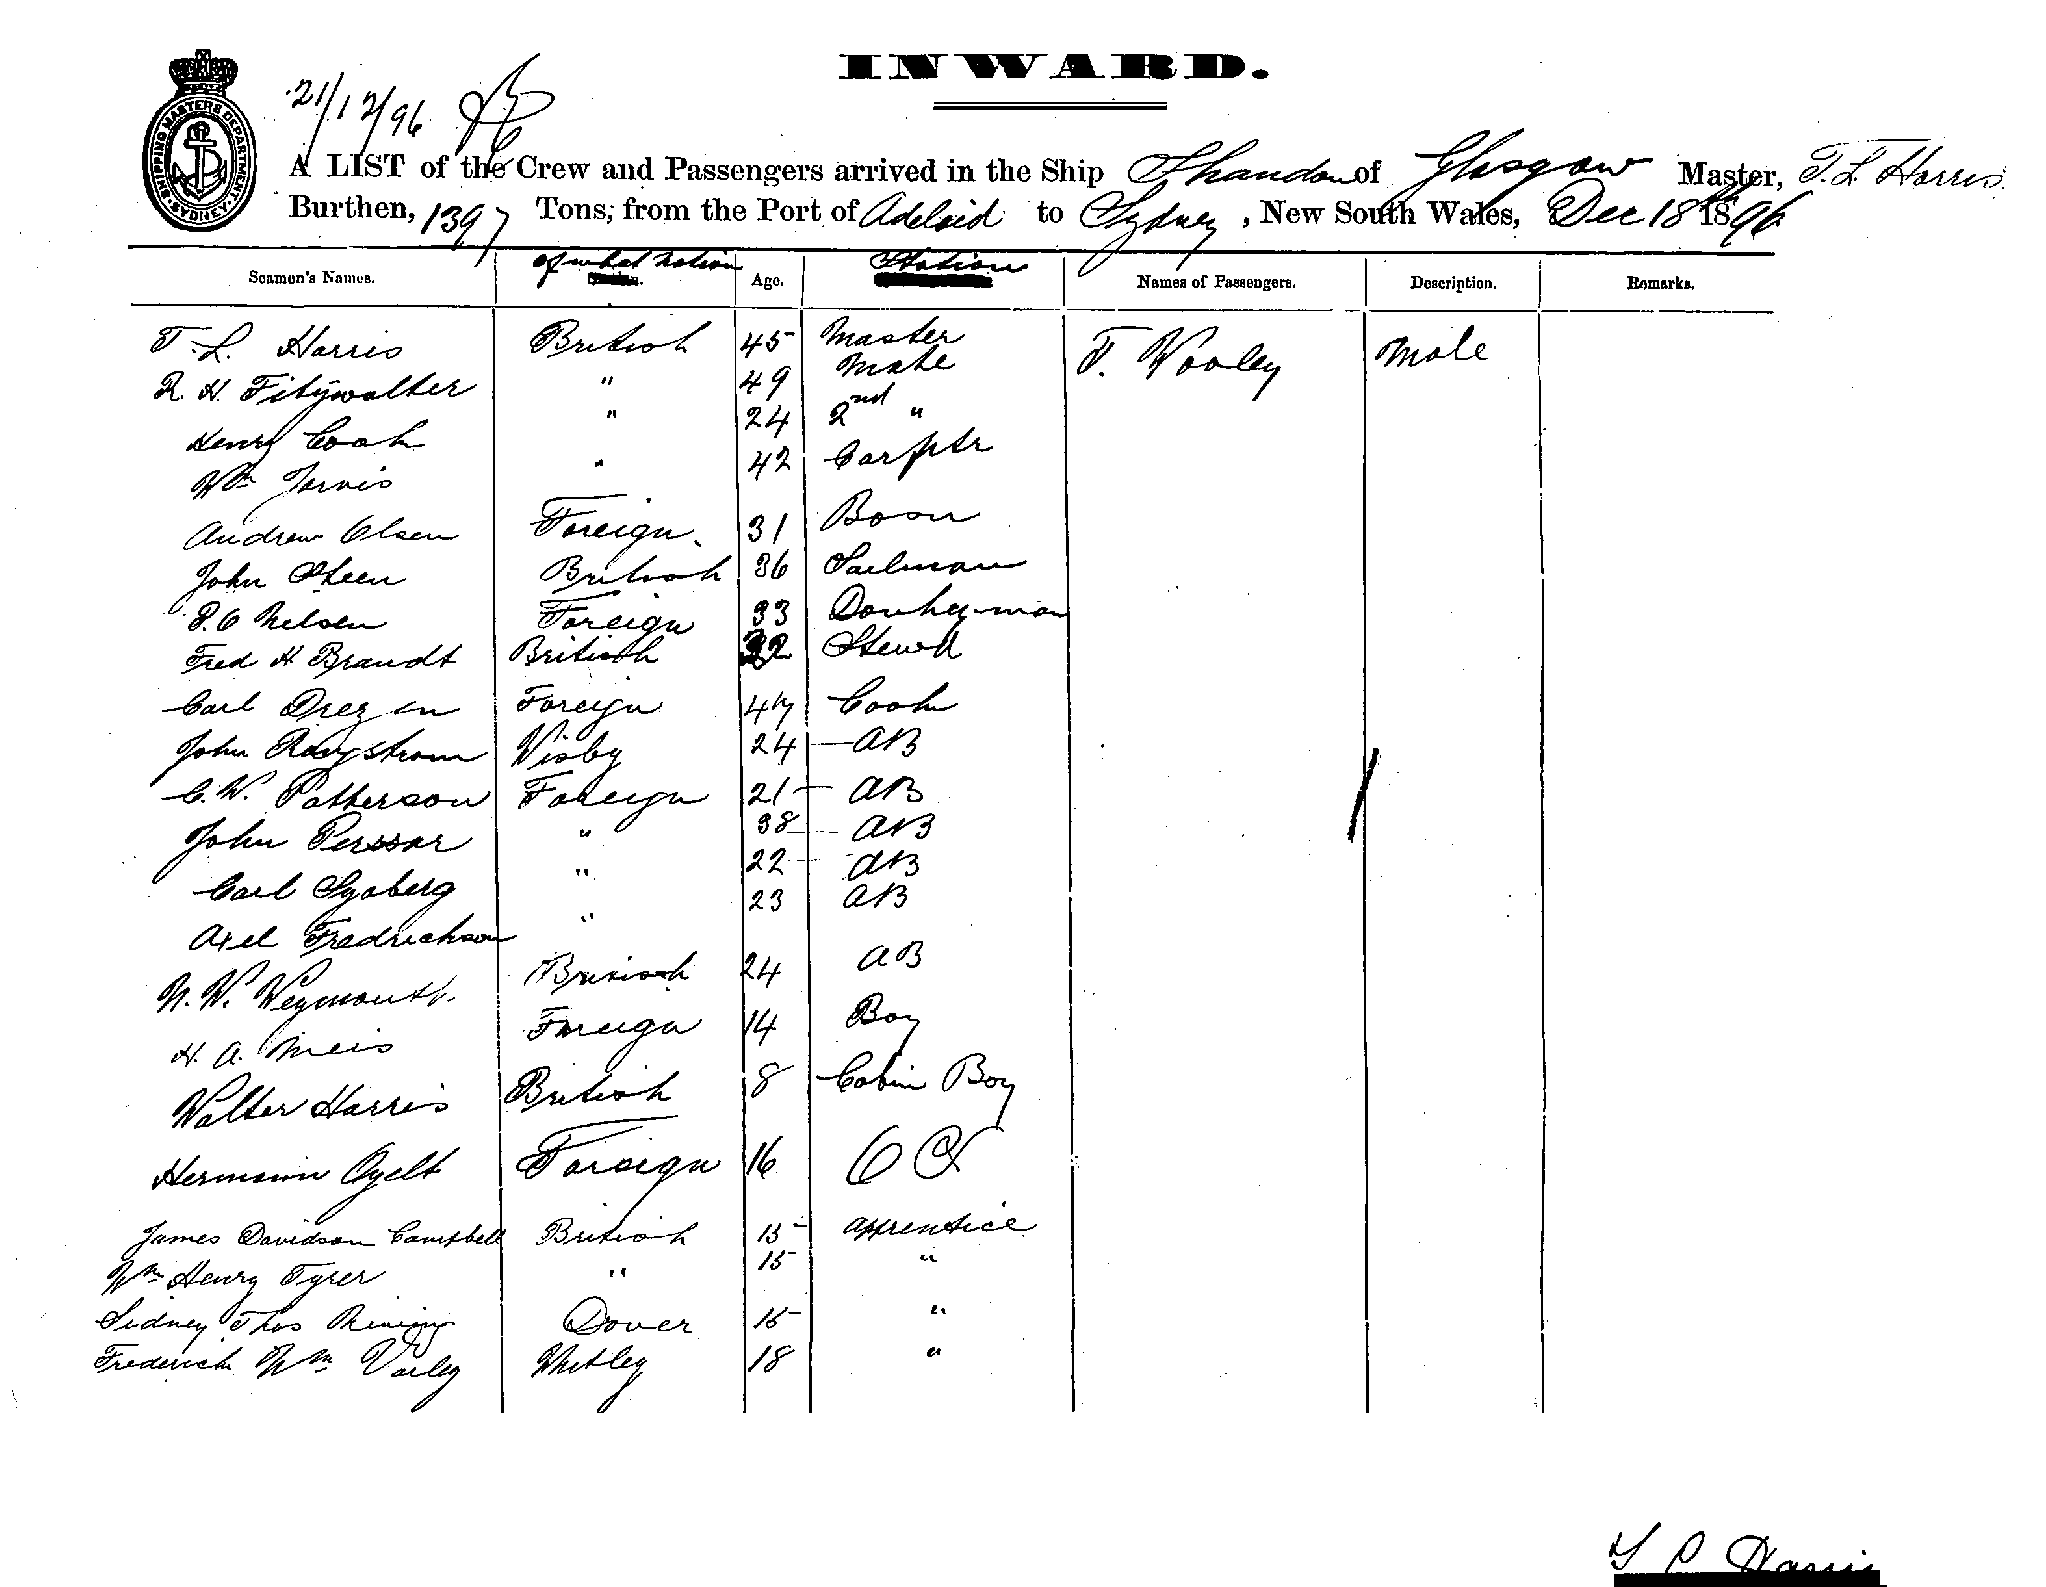 INWARD.
21/12/96
SHIPPING MASTERS DEPARTMENT SYDNEY
A LIST of the Crew and Passengers arrived in the Ship Shandon of Glasgow Master, T. L. Harris
Burthen, 1397 Tons, from the Port of Adelaid to Sydney, New South Wales, Dec 18th 1896
Seamen's Names. of what nation Age. Station Names of Passengers. Description. Remarks.
T. L. Harris British 45 Master T. Wooley Male
R. H. Fitzwalter " 49 Mate
Henry Cook " 24 2nd "
Wm Jarvis " 42 Carptr
Andrew Olsen Foreign. 31 Bosn
John Steen British 36 Sailman
P. O Nelsen Foreign 33 Donkeyman
Fred H Brandt British 32 Stewd
Carl Drezen Foreign 47 Cook
John Visby 24 AB
C. W. Patterson Foreign 21 AB
John Perssor " 38 AB
Carl Syoberg " 22 AB
Axel Fredrickson " 23 AB
W. W. Weymouth British 24 AB
H. A. Meis Foreign 14 Boy
Walter Harris British 8 Cabin Boy
Hermann Foreign 16 OS
James Davidson Campbell British 15 apprentice
Wm Henry Tyrer " 15 "
Sidney Thos Dover 15 "
Frederick Wm Varley Whitley 18 "
T L Harris